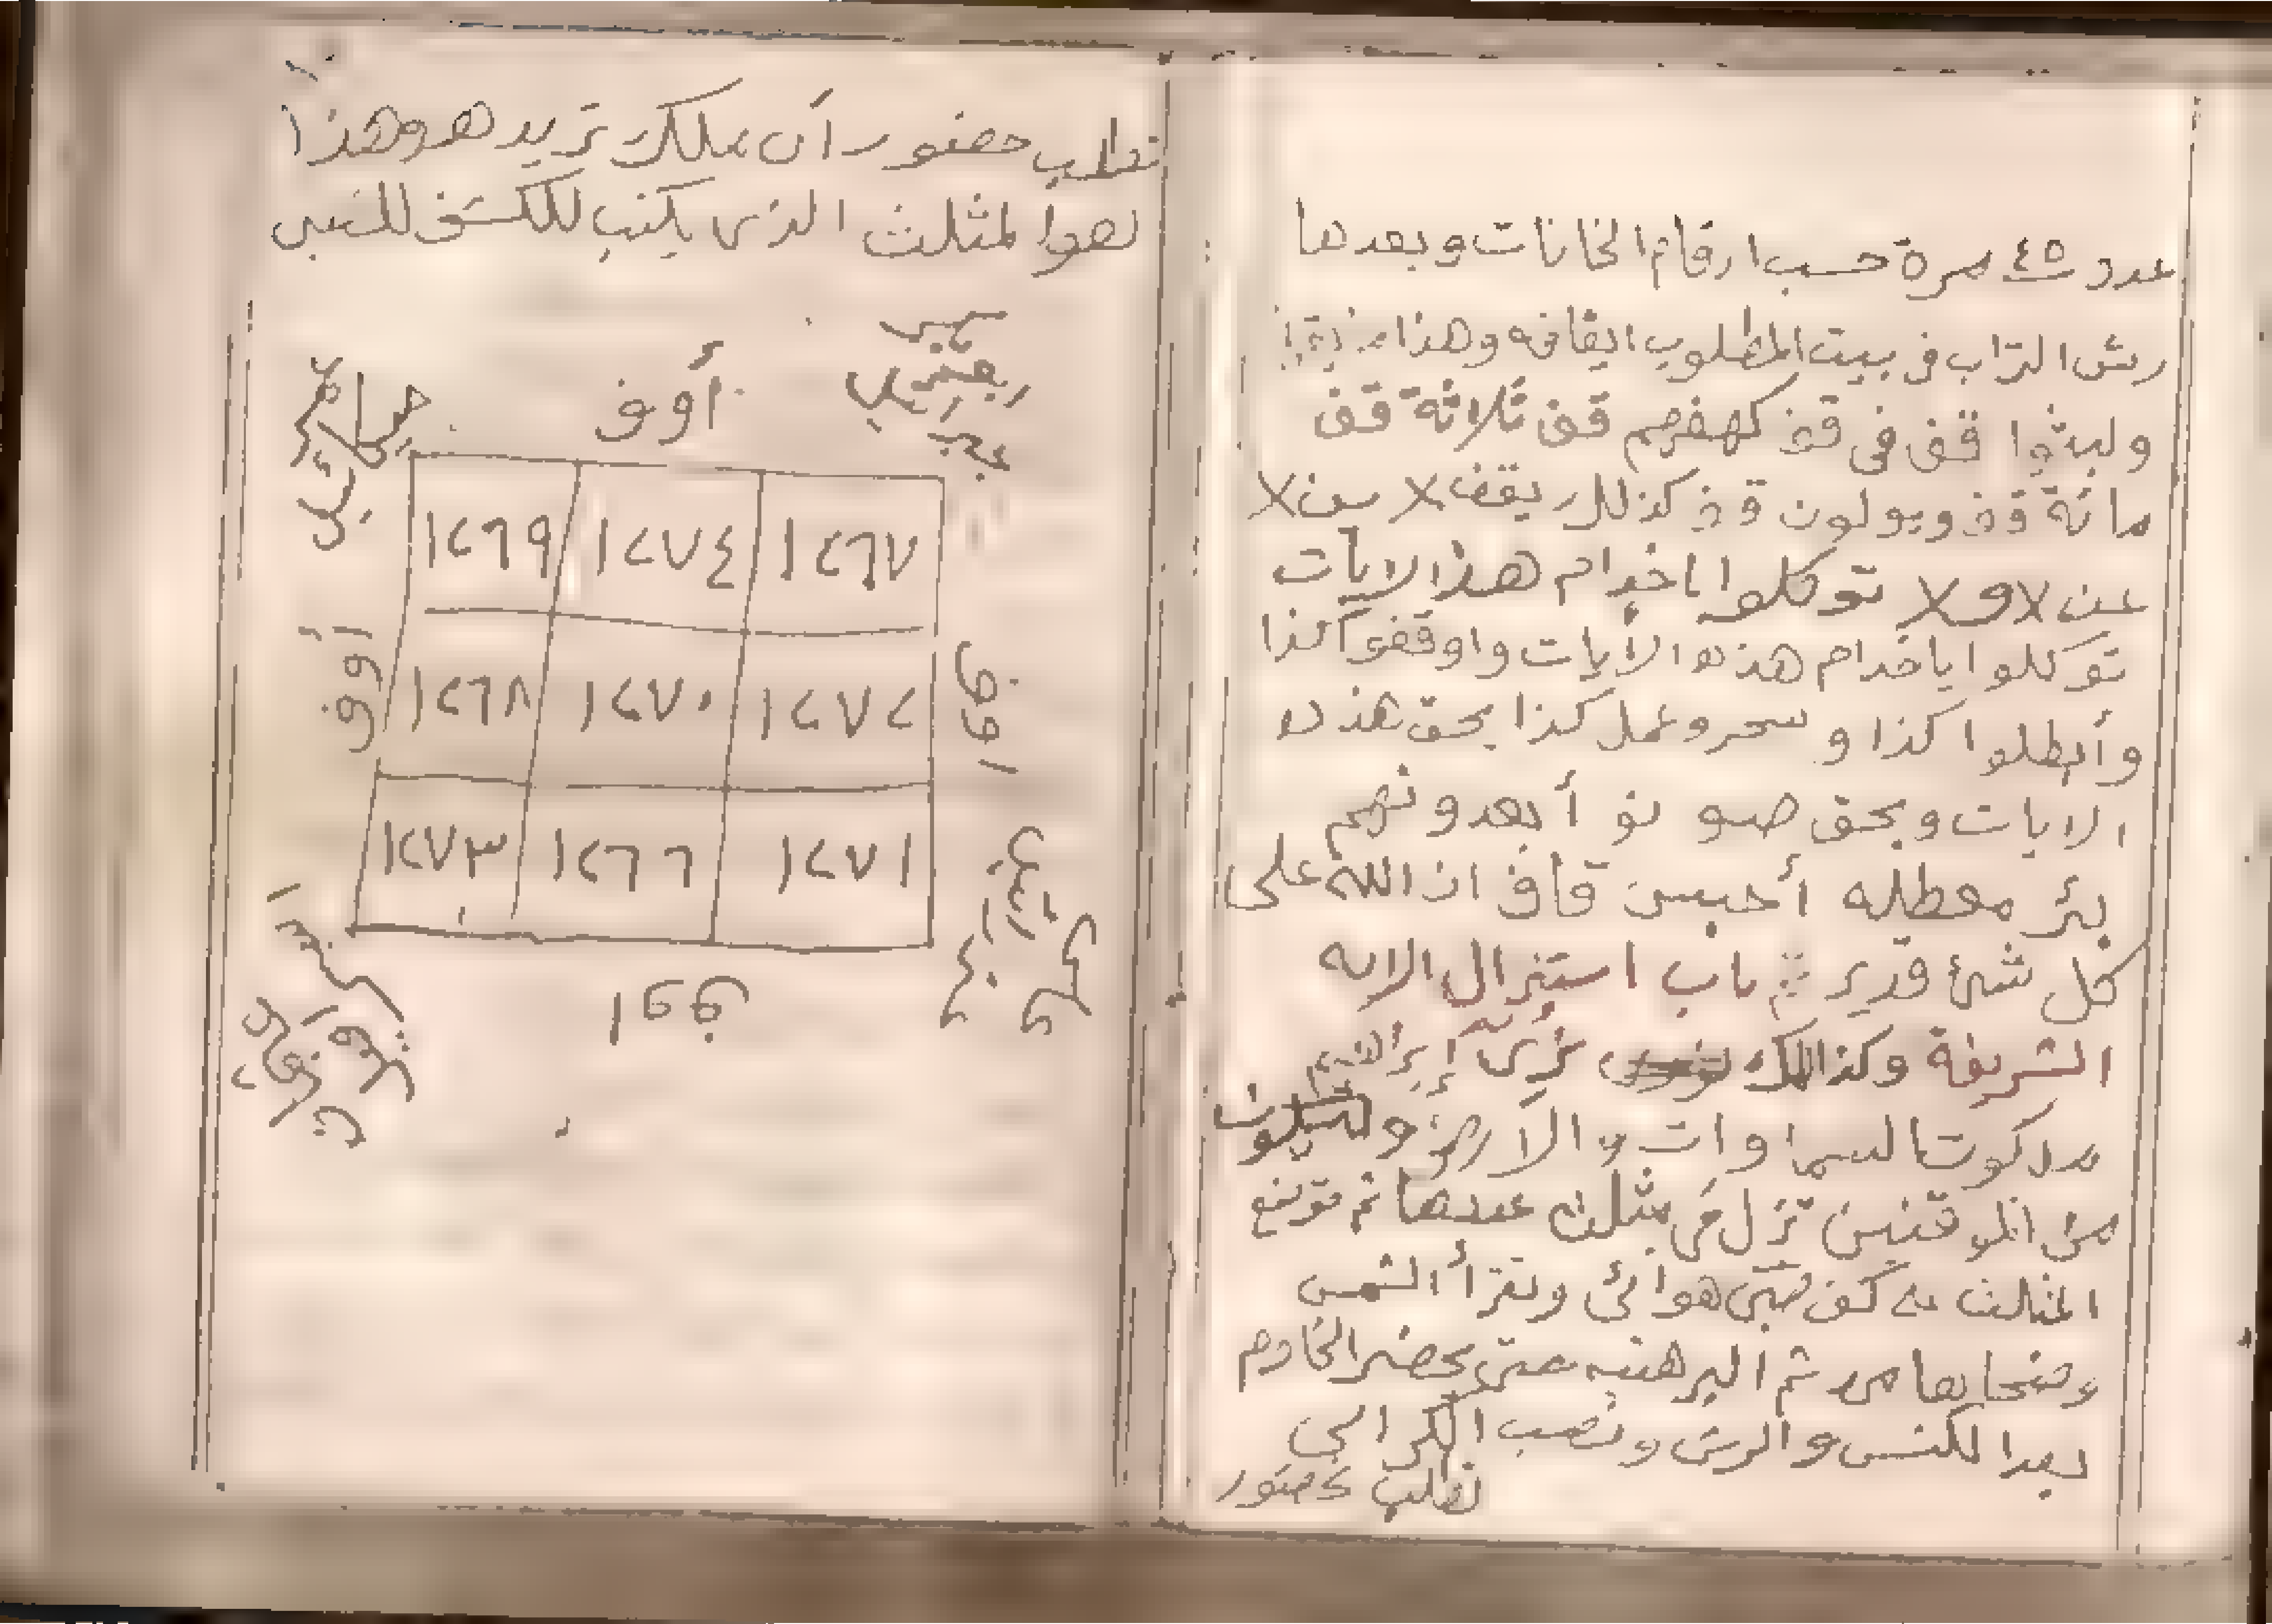 عدد ٤٥ مرة حسب ارقام الخانات وبعدها
رش التراب في بيت المطلوب ايقافه وهذا
ولبثوا قف في قف كهفهم قف ثلاثة قف
مائة قف ويولون قف كذلك يقف لا من لا
عن لا ولا توكلوا ياخدام هذا الايات
توكلوا ياخدام هذه الأيات واوقفوا كذا
وأبطلوا كذا و سحر وعمل كذا بحق هذه
الايات وبحق صو نو أبعدونهم
بئر معطله أحبس قاف ان الله على
كل شئ قدير باب استنزال الايه
الشريفة وكذالك نرى إبراهيم
ملكوت السماوات والارض وليكون
من الموقنين تنزل في مثلث عددها ثم توضع
المثلث على كف صبى هوائي وتقرأ الشمس
وضحاها ثم البرهتيه حتى يحضر الخادم
بعد الكنس والرش ونصب الكراسي
تطلب حضور
تطلب حضور أى ملك تريد هو وهذا
هوا لمثلث الذى يكتب للكشف للصبى
أوف
١٢٦٩ ١٢٧٤ ١٢٦٧
أوف
١٢٦٨ ١٢٧٠ ١٢٧٢
١٢٧٣ ١٢٦٦ ١٢٧١